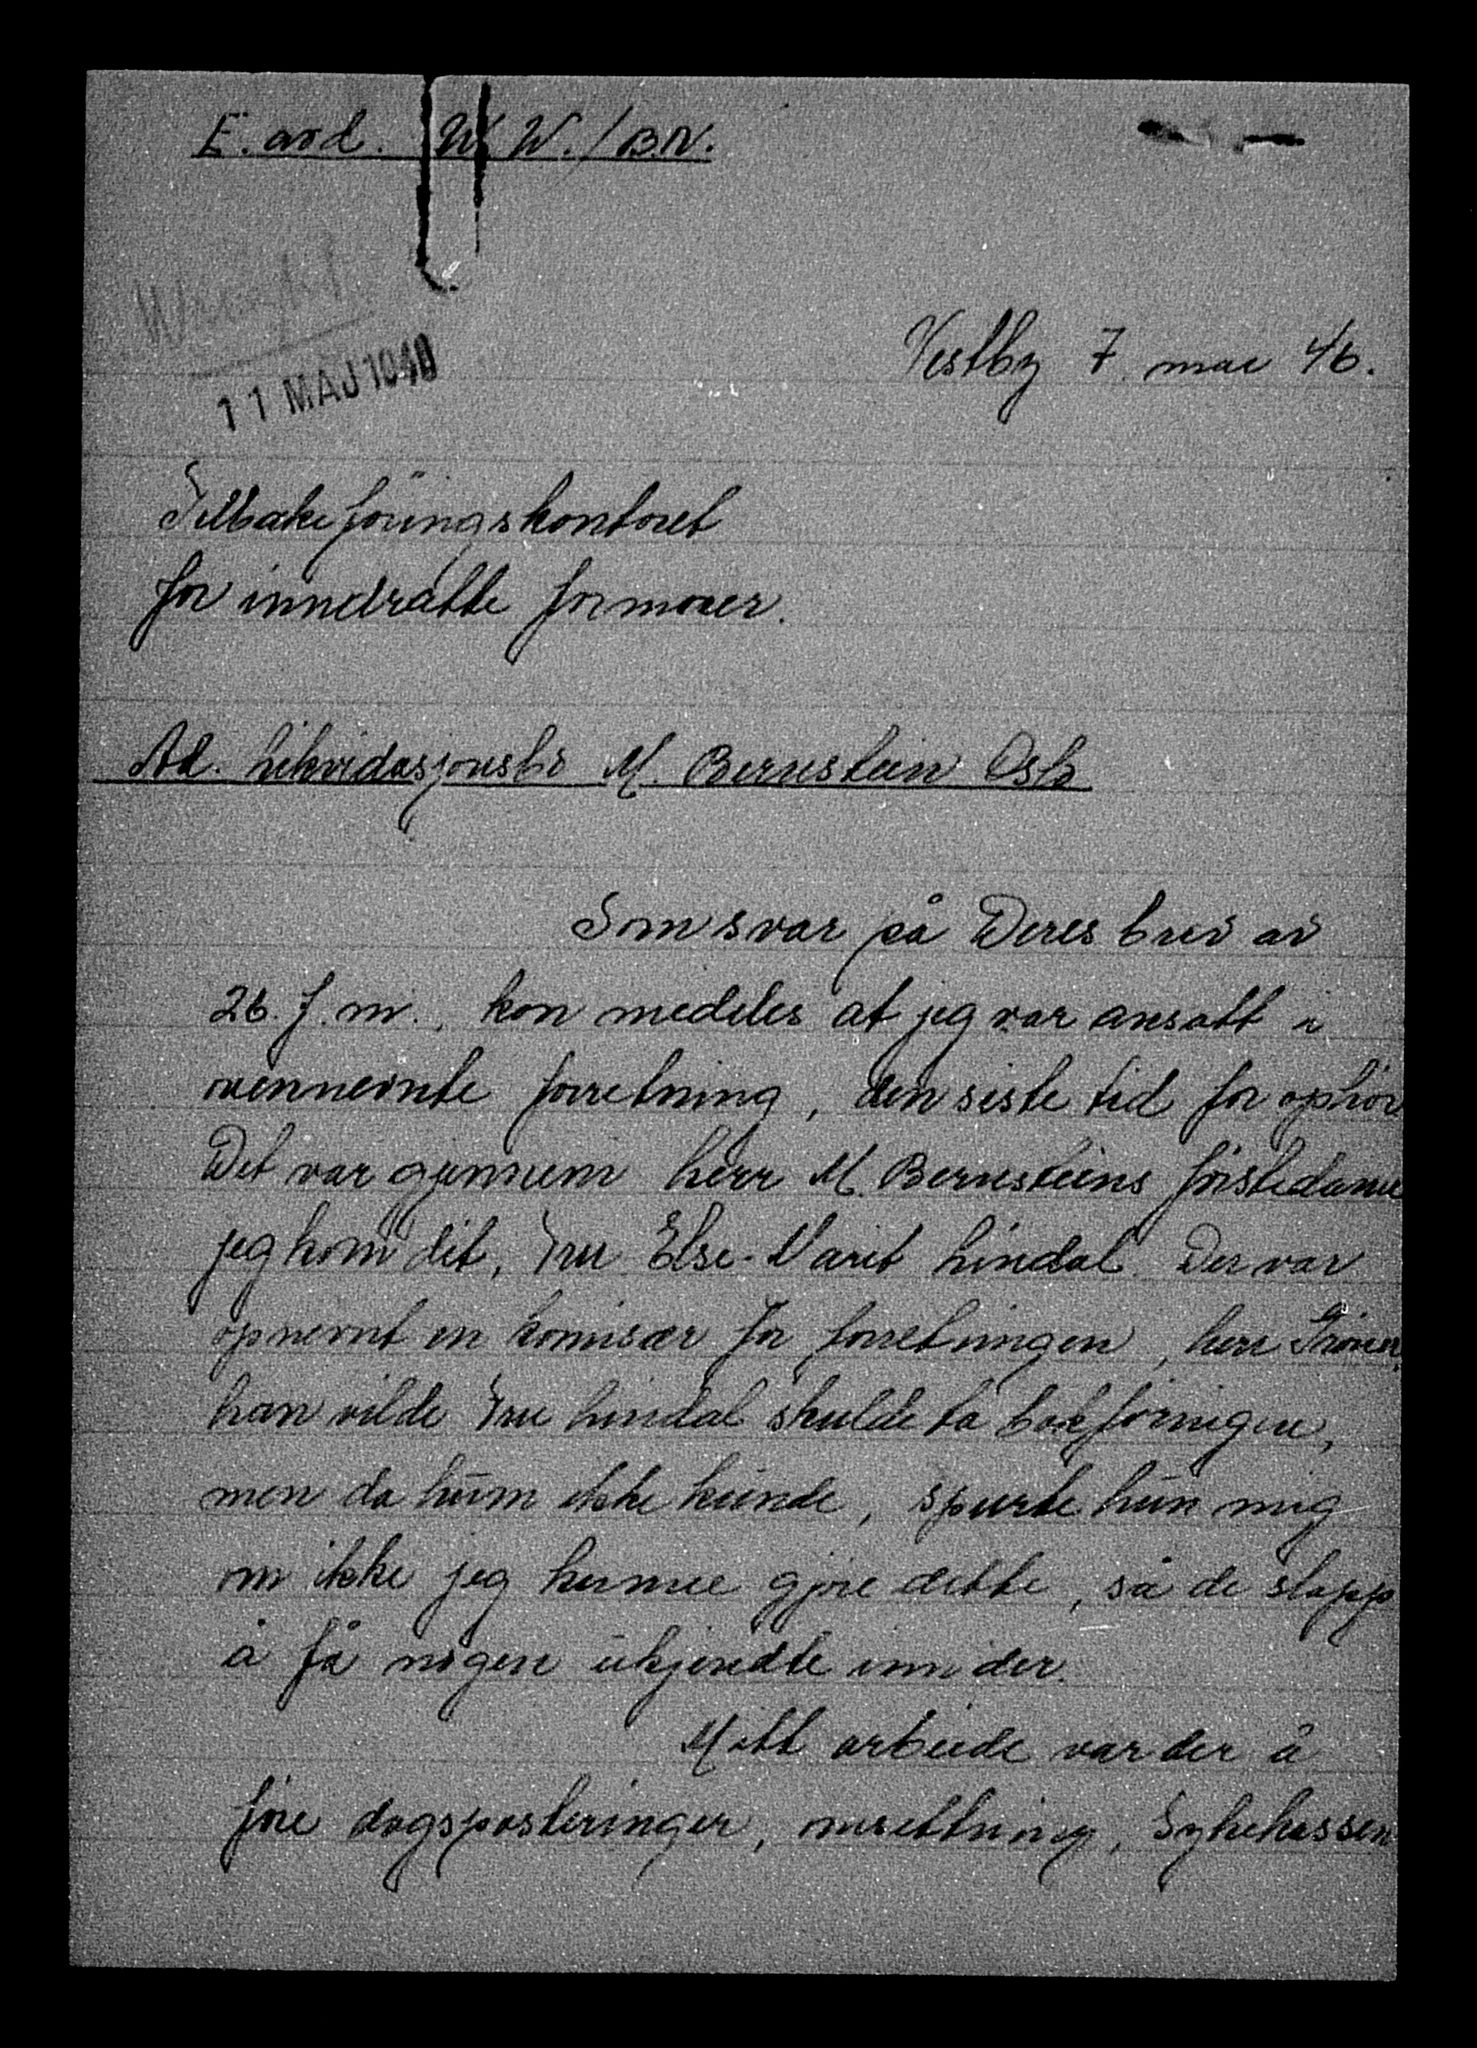 E. avd. W W. / B.N.
Vestby 7. mai 46.
11 MAJ 1946
Tilbakeføringskontoret
for inndratte formuer.
Ad. Likvidasjonsbo M. Bernstein Oslo
Som svar på Deres brev av
26. f.m., kan meddeles at jeg var ansatt i
ovennevnte forretning, den siste tid før ophør
Det var gjennem herr M. Bernsteins förstedame
jeg kom dit, Fru Else-Marit Lindal. Der var
opnevnt en komisær for forretningen, herr
han vilde Fru Lindal skulde ta bokføringen,
men da hun ikke kunde, spurte hun mig
om ikke jeg kunne gjøre dette, så de slapp
å få nogen ukjendte inn der.
Mitt arbeide var der å
føre dagsposteringer, omsettning, Sykekassen